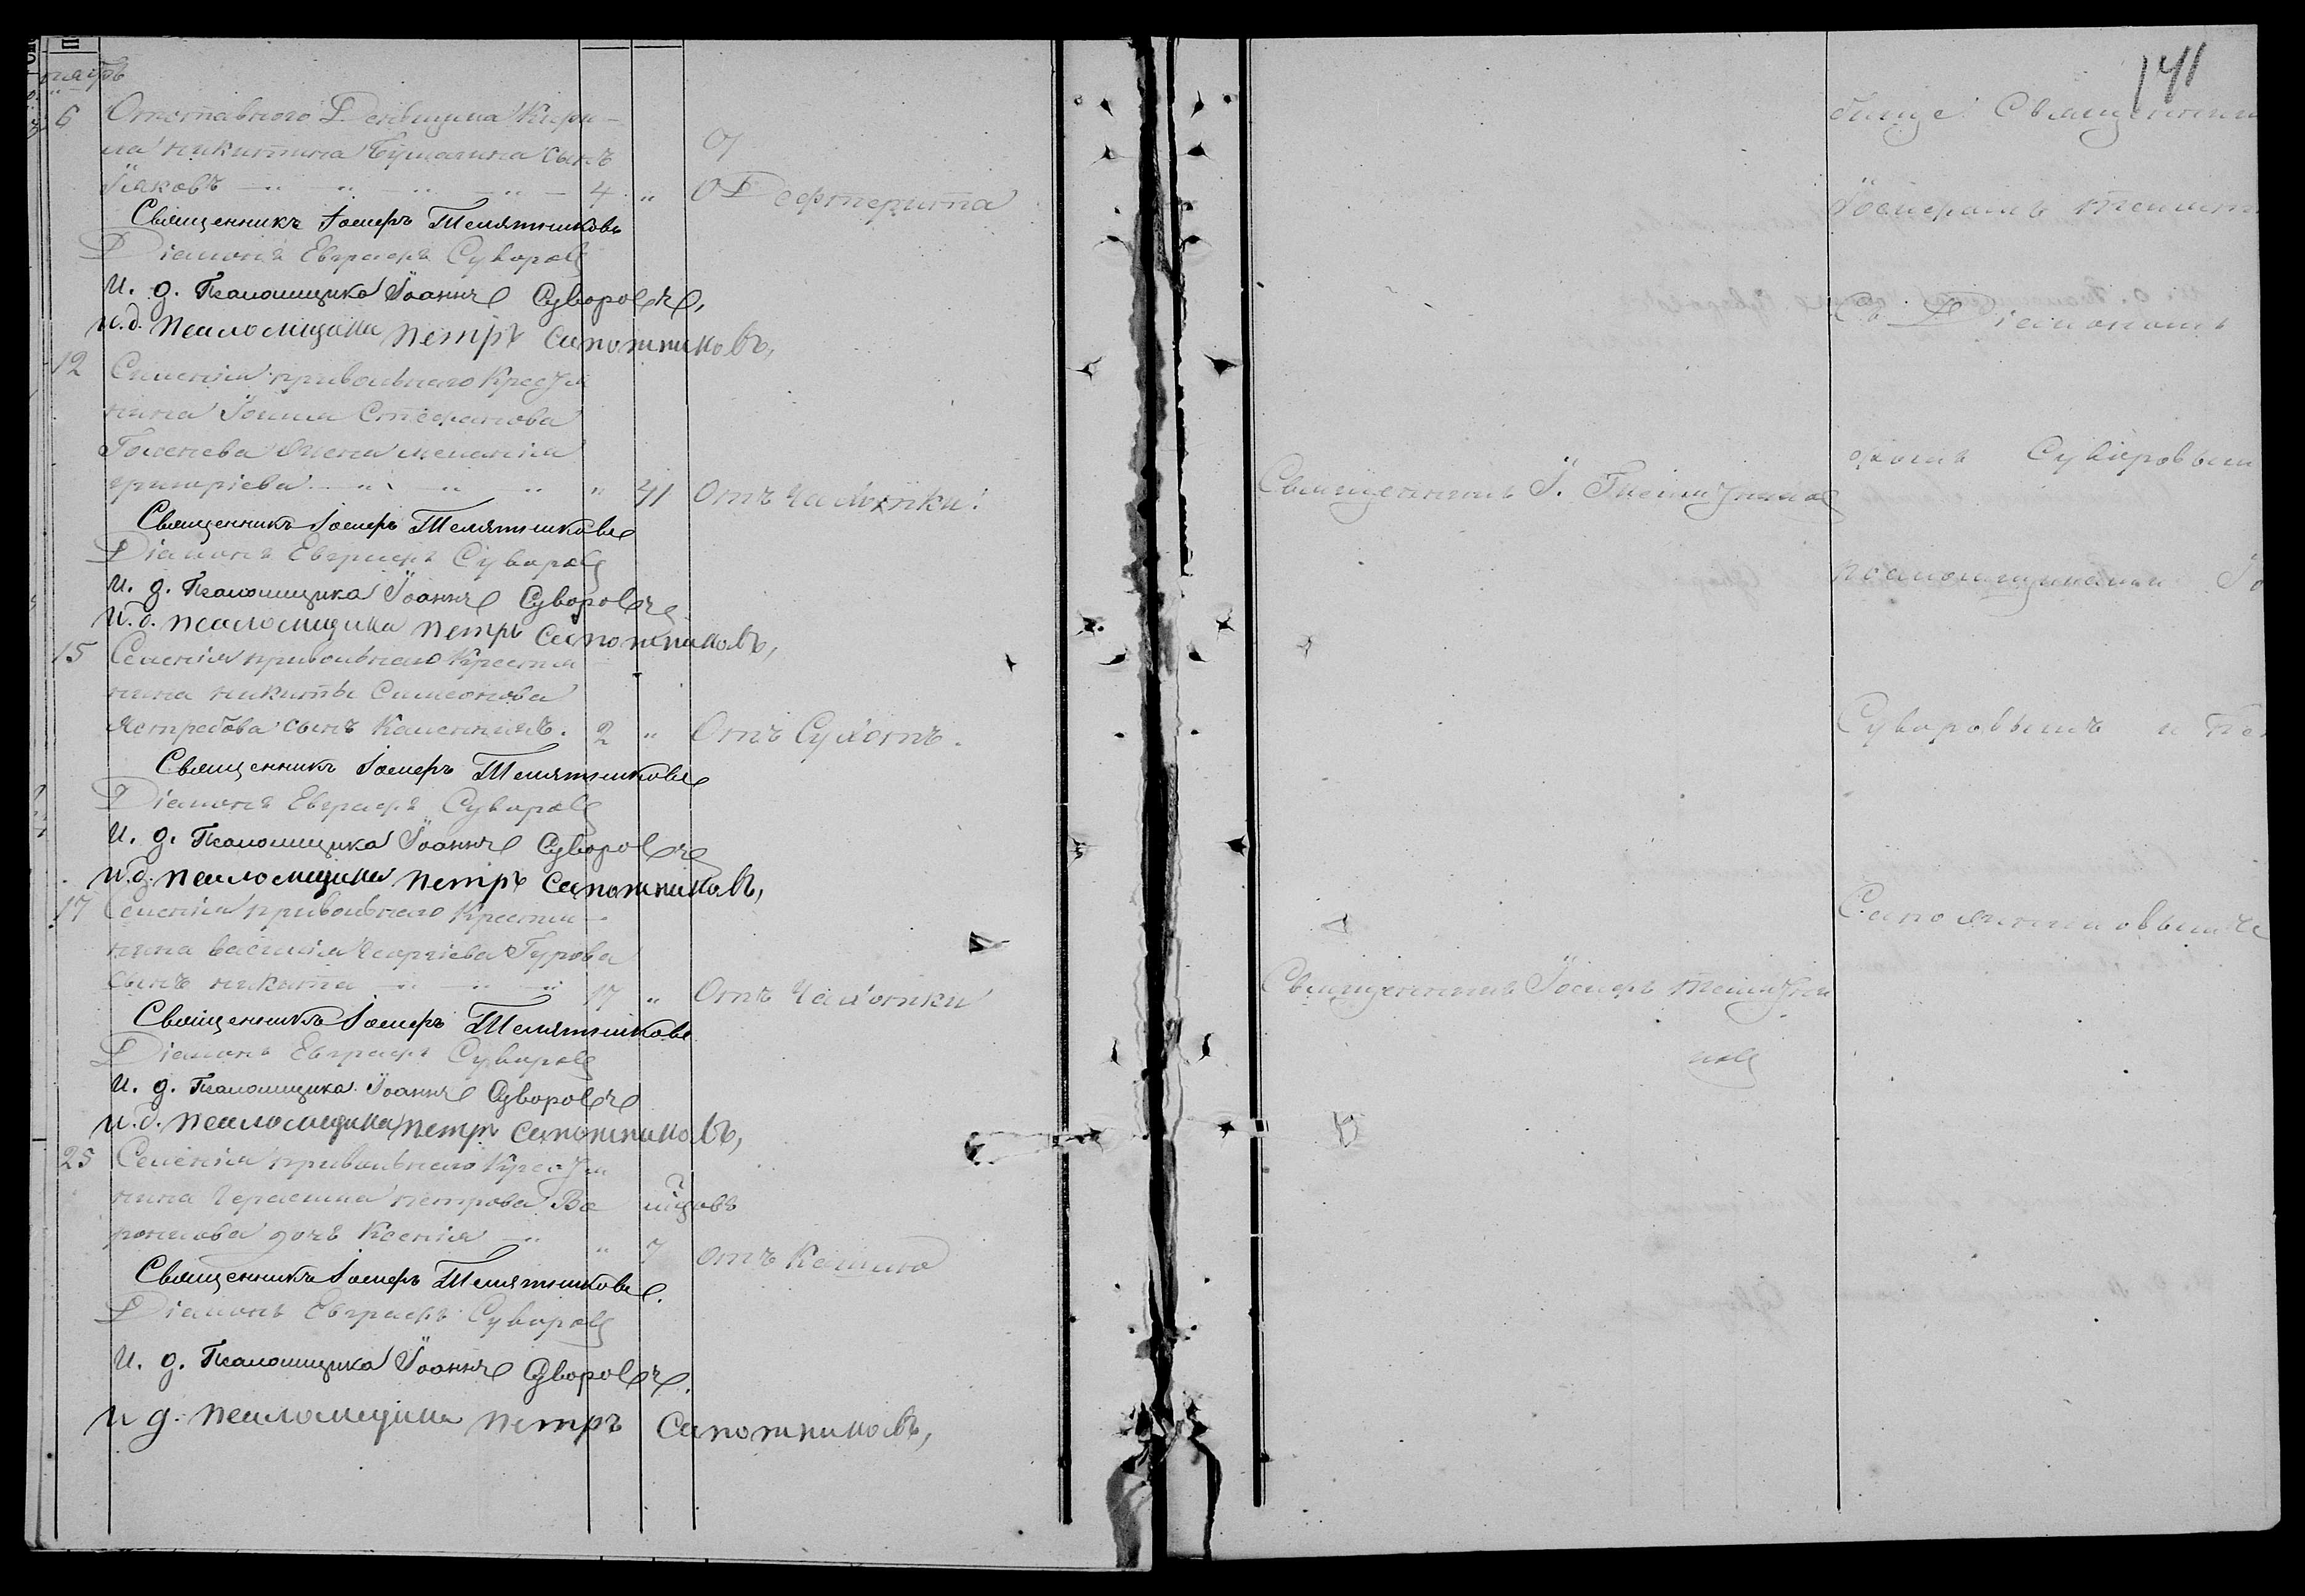 141
6 Отставного Деньщика Кири-
ла Никитина сынъ
Іяковъ 4 " Дефтерита
Священникъ Іосифъ Телятниковъ
Діаконъ Евграфъ Суворовъ
И. д. Псаломщика Іоаннъ Суворовъ,
и.д. псаломщика петръ сапожниковъ,
12 Селенія привольнаго Кресть
нина Стефанова
жена меланія
григоріева " 41 Отъ Чахотки.
Священникъ Іосифъ Телятниковъ
Діаконъ Евграфъ Суворовъ
И. д. Псаломщика Іоаннъ Суворовъ
и.д. псаломщика петръ сапожниковъ,
15 Селенія привольнаго Крестья
нина никиты Симеонова
Ястребова сынъ 2 " Отъ Сухотъ.
Священникъ Іосифъ Телятниковъ
Діаконъ Евграфъ Суворовъ
И. д. Псаломщика Іоаннъ Суворовъ
и.д. псаломщика петръ сапожниковъ,
17 Селенія привольнаго Крестья-
нина василія Георгіева Гурова
сынъ никита 17 " Отъ Чахотки
Священникъ Іосифъ Телятниковъ
Діаконъ Евграфъ Суворовъ
И. д. Псаломщика Іоаннъ Суворовъ
и.д. псаломщика петръ сапожниковъ,
25 Селенія привольнаго Кресть
нина Герасима петрова Во
ронцова дочь Ксенія " 7 отъ Кашлю
Священникъ Іосифъ Телятниковъ.
Діаконъ Евграфъ Суворовъ
И. д. Псаломщика Іоаннъ Суворовъ.
и д. псаломщика петръ сапожниковъ,
Священникъ І. Телятниковъ
Священникъ Іосифъ Телятни
ковъ
бище Священник
Іосифомъ телятн
Съ Діакономъ
Суворовым
псаломщиками Іо
Суворовымъ и Пе
Сапожниковымъ